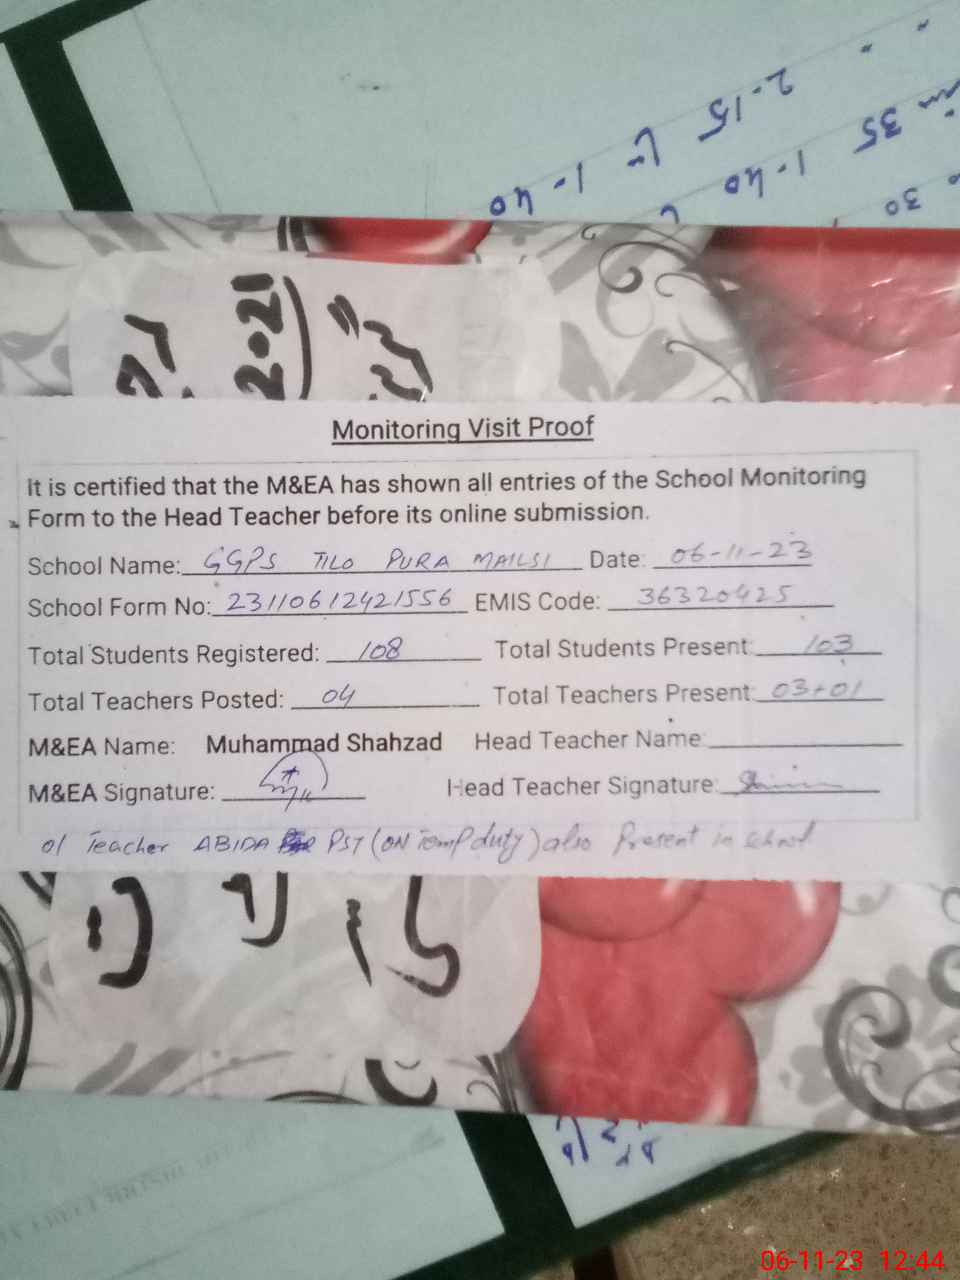 2.15
35
1-40
1-40
30
2021
Monitoring Visit Proof
It is certified that the M&EA has shown all entries of the School Monitoring
Form to the Head Teacher before its online submission.
School Name: GGPS TILO PURA MAILSI Date: 06-11-23
School Form No: 23110612421556 EMIS Code: 36320425
Total Students Registered: 108 Total Students Present: 103
Total Teachers Posted: 04 Total Teachers Present: 03+01
M&EA Name: Muhammad Shahzad Head Teacher Name:
M&EA Signature: Head Teacher Signature:
01 Teacher ABIDA PST (ON Temp duty) also Present in school
06-11-23 12:44